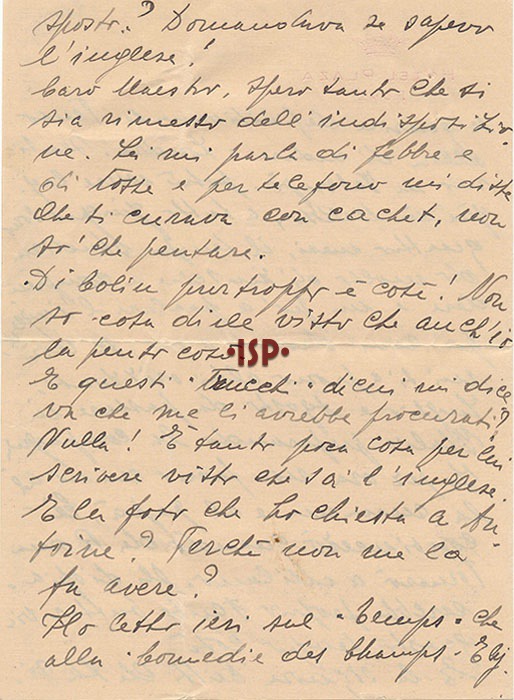 sposto? Domandava se sapevo
l'inglese!
Caro Maestro, spero tanto che si
sia rimesso dell'indisposizio
ne. Lei mi parla di febbre e
di tosse e per telefono mi disse
che si curava con cachet, non
so' che pensare.
Di Colin purtroppo è così! Non
so cosa dirle visto che anch'io
la penso così.
•ISP•
E questi "Trucchi" dieci mi dice
va che me li avrebbe procurati?
Nulla! È tanto poca cosa per lui
scrivere visto che sa l'inglese.
E la foto che ho chiesta a An
toine? Perchè non me la
fa avere?
Ho letto ieri sul "Temps" che
alla "Comedie des Champs - Elij.